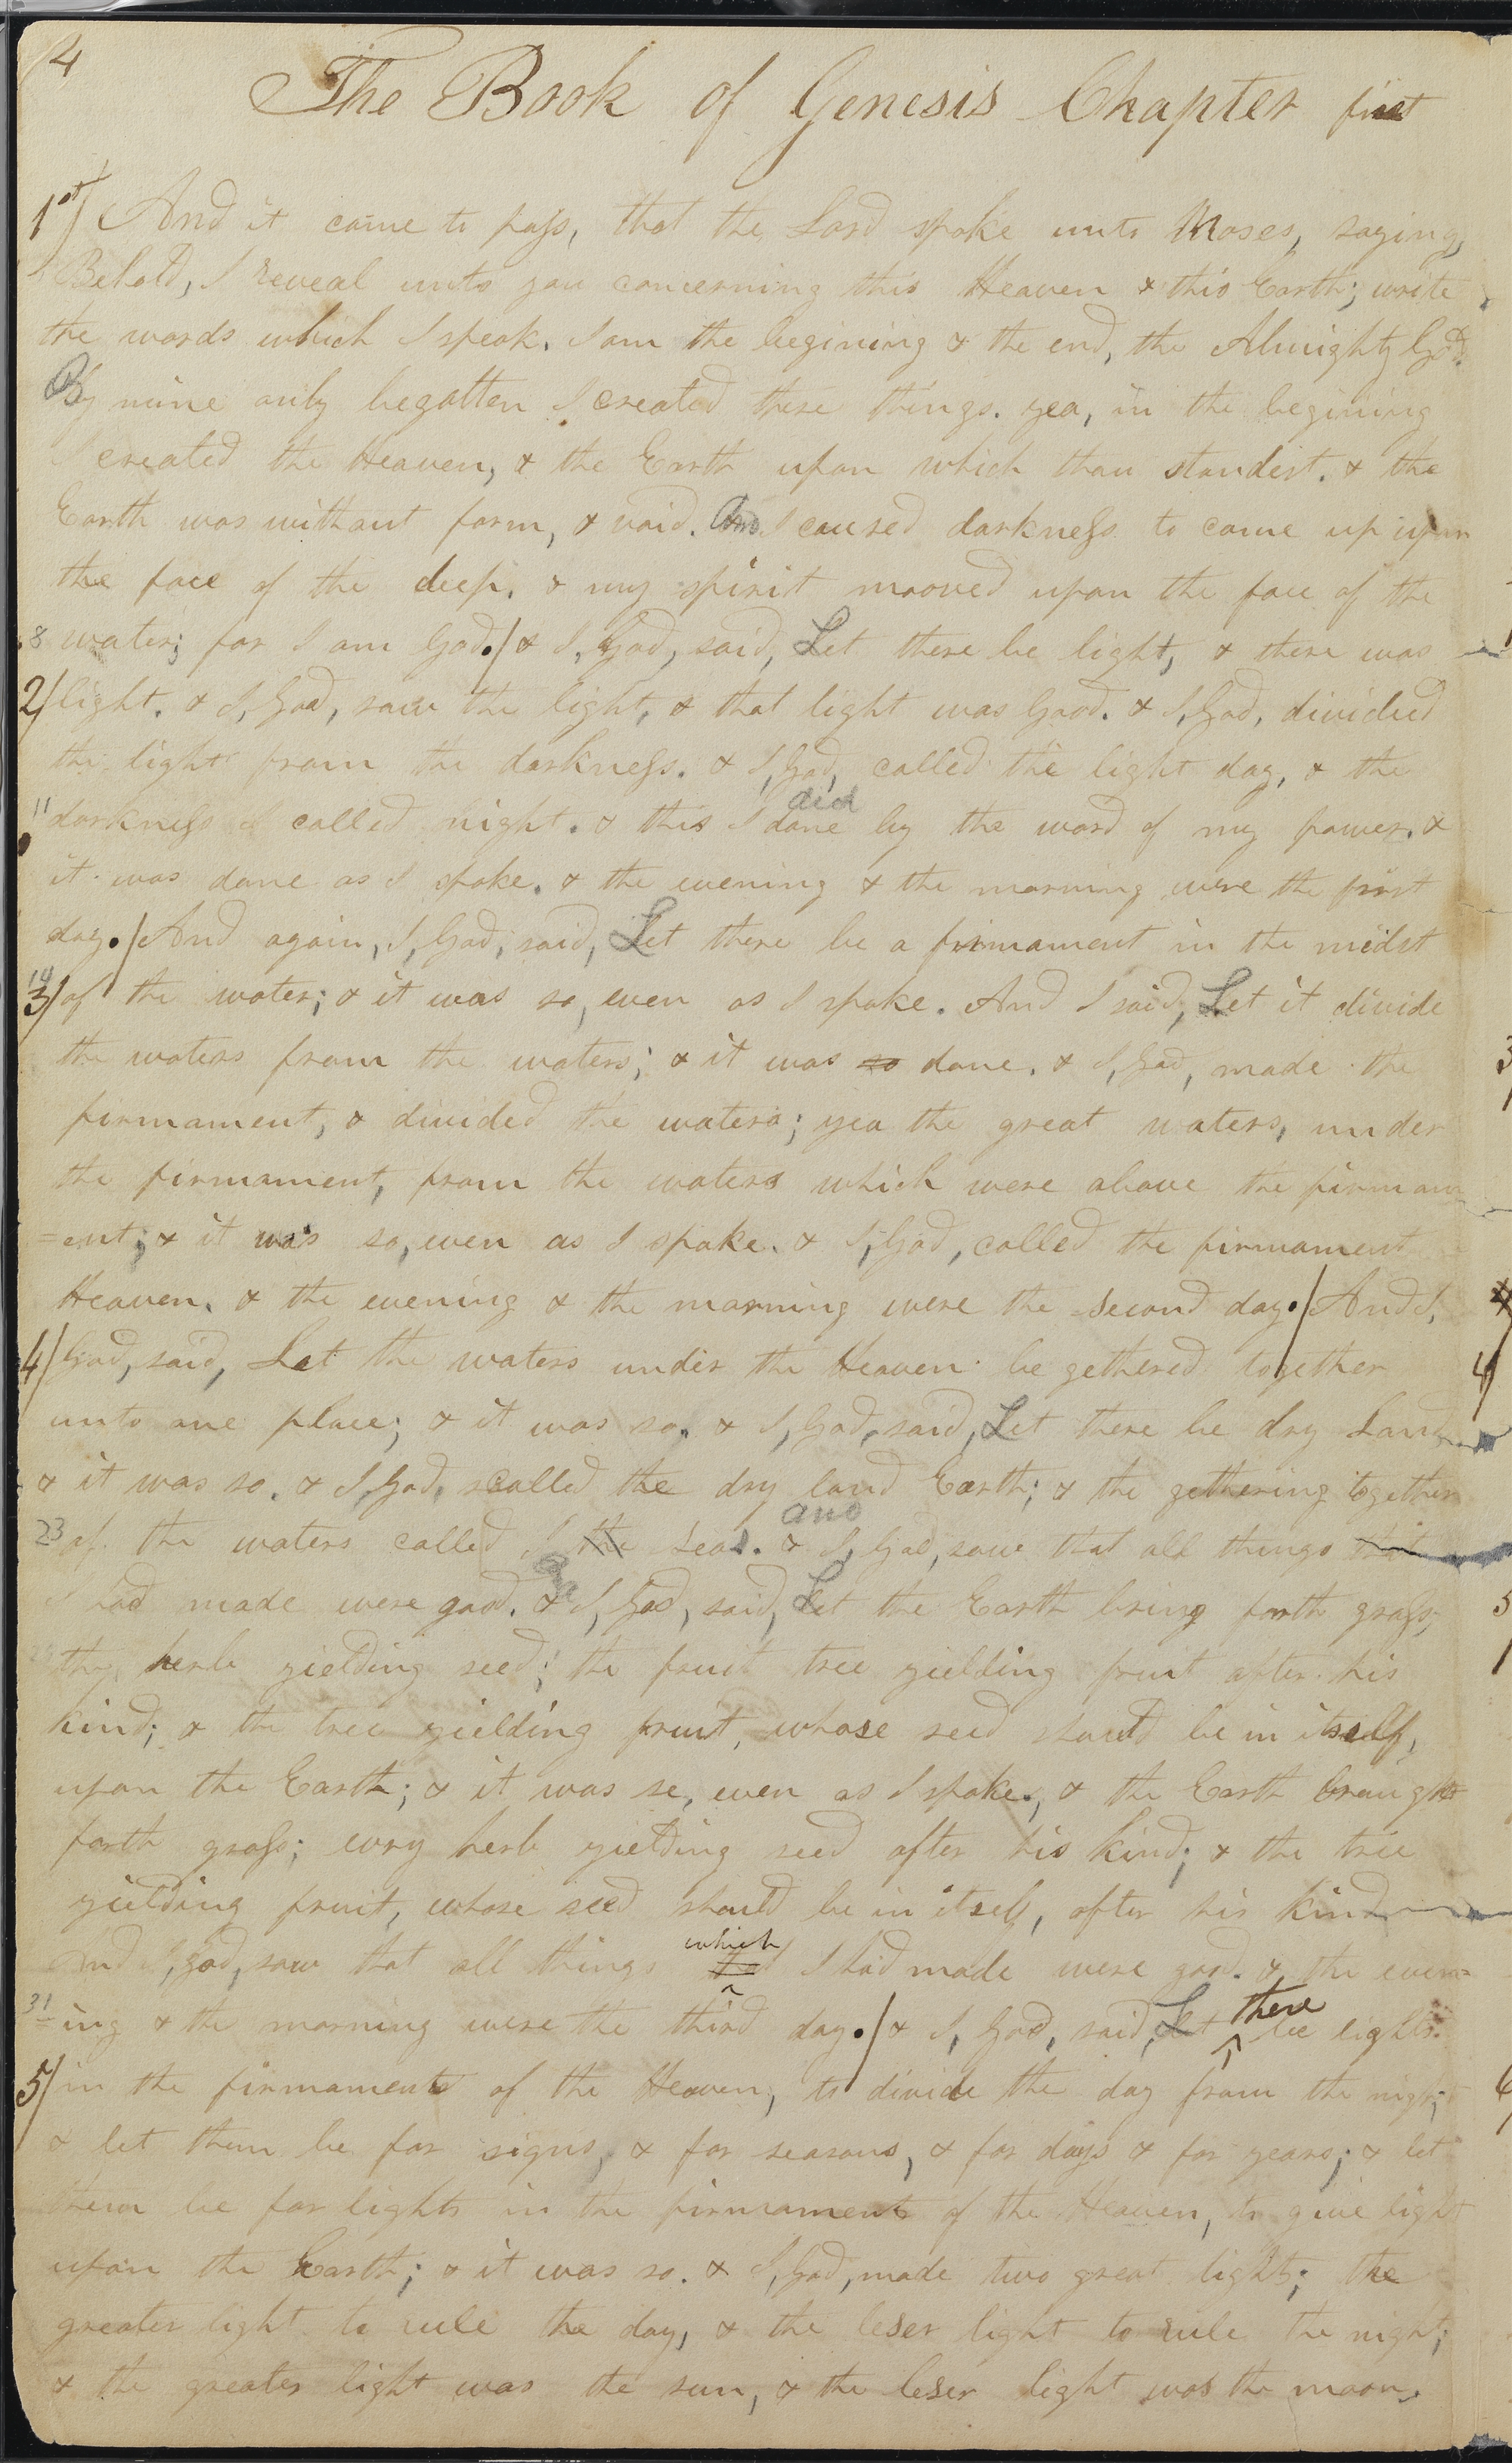 4
The Book of Genesis Chapter first
1st/ And it came to pass, that the Lord spoke unto Moses, saying,
Behold, I reveal unto you concerning this Heaven & this Earth; write
the words which I speak. I am the begining & the end, the Almighty God.
By mine only begotten I created these things. yea, in the begining
I created the Heaven, & the Earth upon which thou standest. & the
Earth was without form, & void. And I caused darkness to come up upon
the face of the deep. & my spirit mooved upon the face of the
8 water; for I am God./ & I, God, said, Let there be light, & there was
2/ light. & I, God, saw the light, & that light was Good. & I, God, divided
the light from the darkness. & I, God, called the light day, & the
did
11 darkness I called night. & this I done by the word of my power. &
it was done as I spoke. & the evening & the morning were the first
day./ And again, I, God, said, Let there be a firmament in the midst
14
3/ of the water; & it was so, even as I spoke. And I said, Let it divide
the waters from the waters; & it was so done. & I, God, made the
firmament, & divided the waters; yea the great waters, under
the firmament, from the waters which were above the firmam
=ent; & it was so, even as I spoke. & I, God, called the firmament
Heaven. & the evening & the morning were the second day./ And I,
4/ God, said, Let the waters under the Heaven be gethered together
unto one place; & it was so. & I, God, said, Let there be dry Land
& it was so. & I, God, called the dry land Earth; & the gethering together
and
23 of the waters called I the Seas. & I, God, saw that all things that
I had made were good. & I, God, said, Let the Earth bring forth grass;
the herb yielding seed; the fruit tree yielding fruit after his
kind; & the tree yielding fruit, whose seed should be in itself,
upon the Earth; & it was so, even as I spoke., & the Earth brought
forth grass; evry herb yielding seed after his kind; & the tree
yielding fruit, whose seed should be in itself, after his kind
which
And I, God, saw that all things that I had made were good. & the even=
there
31 =ing & the morning were the third day./ & I, God, said, Let ^ be lights
5/ in the firmament of the Heaven, to divide the day from the night;
& let them be for signs, & for seasons, & for days & for years; & let
them be for lights in the firmament of the Heaven, to give light
upon the Earth; & it was so. & I, God, made two great lights; the
greater light to rule the day, & the leser light to rule the night;
& the greater light was the sun, & the leser light was the moon.